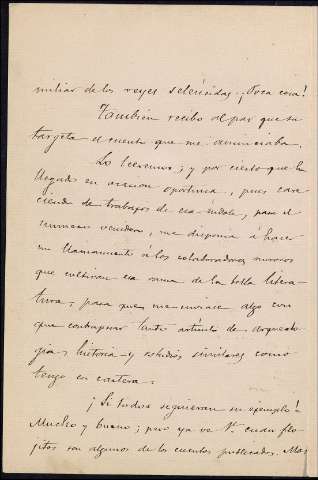 miliar de los reyes seléucidas. ¡Poca cosa!
También recibo al par que su
targeta el cuento que me anunciaba.
Lo leeremos; y por cierto que ha
llegado en ocasion oportuna, pues care
ciendo de trabajos de esa índole, para el
número venidero, me disponia á hacer
un llamamiento á los colaboradores
que cultivan esa rama de la bella litera-
tura, para que me enviase algo con
que contrapesar tanto artículo de arqueolo-
gia, historia y estudios similares como
tengo en cartera.
¡Si todos siguieran su ejemplo!
Mucho y bueno; pero ya ve V. cuan flo
jitos son algunos de los cuentos publicados. Mas